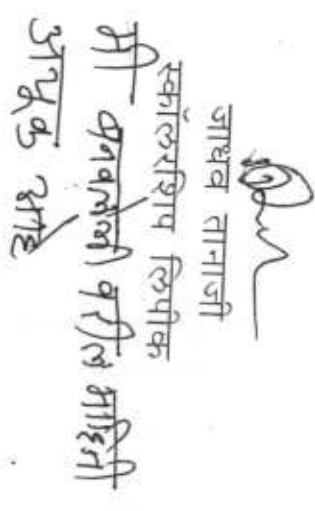 जाधव तानाजी
स्कॉलरशिप लिपीक
मी वरील माहिती
अचूक आहे